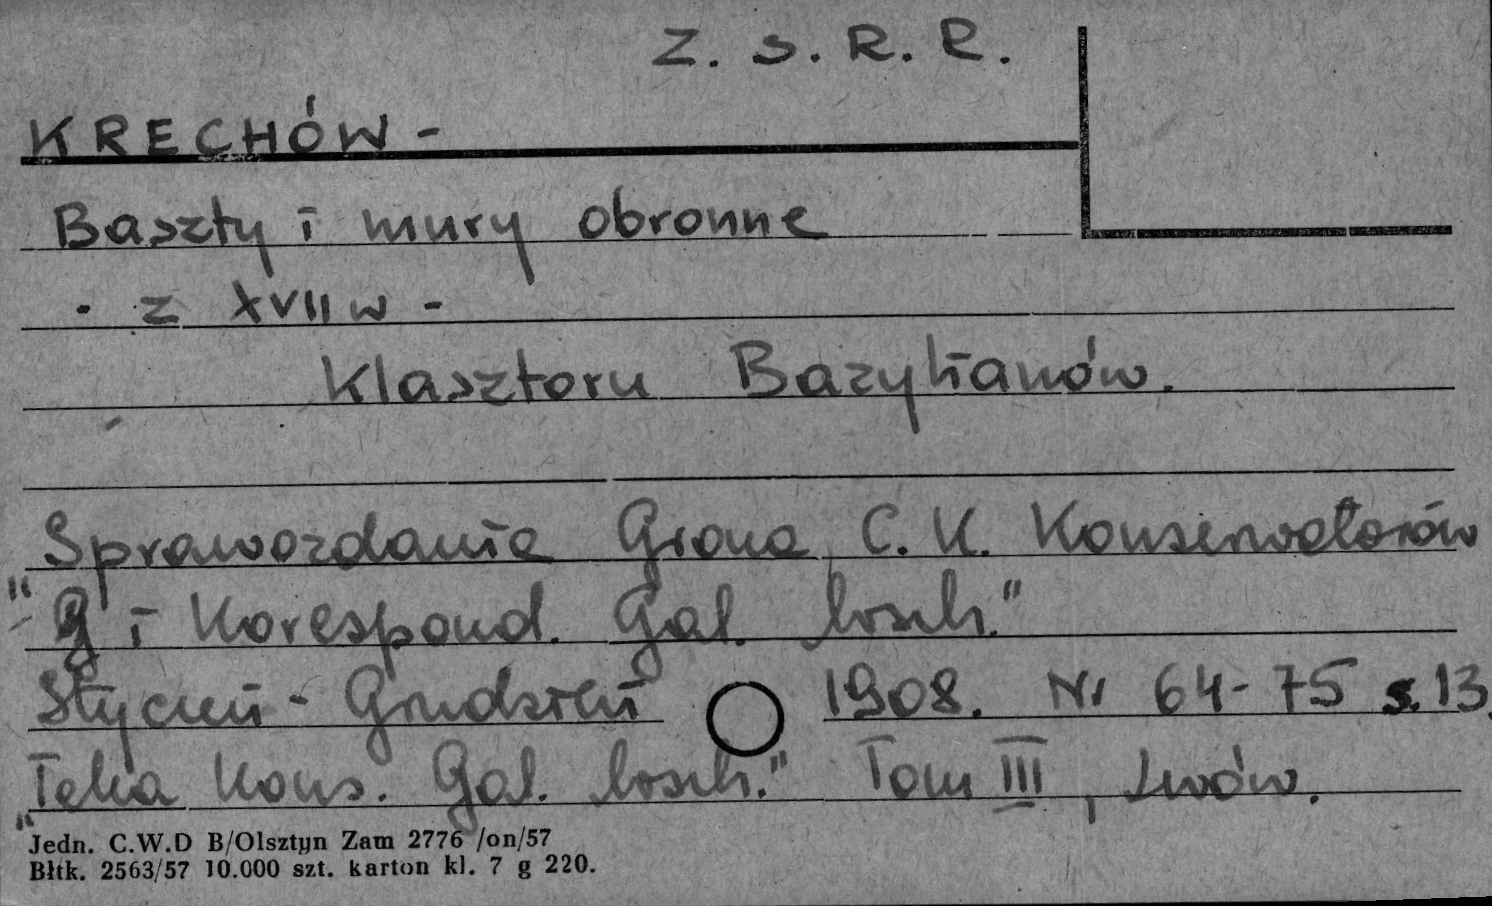 Z. S. R. R.
KRECHÓW -
Baszty i mury obronne
- z XVII w -
Klasztoru Bazylianów.
Sprawozdanie Grona C. K. Konserwatorów
" i Korespond. Gal. wsch."
Styczeń - Grudzień 1908. Nr 64-75 s. 13.
"Teka Kons. Gal. wsch." Tom III, Lwów.
Jedn. C.W.D B/Olsztyn Zam 2776 /on/57
Błtk. 2563/57 10.000 szt. karton kl. 7 g 220.